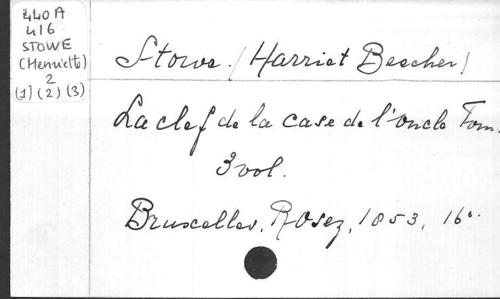 440A
416
STOWE
(Henriette)
2
(1) (2) (3)
Stowe. (Harriet Beecher)
La clef de la case de l'oncle Tom.
3 vol.
Bruxelles, Rosez, 1853, 16º.